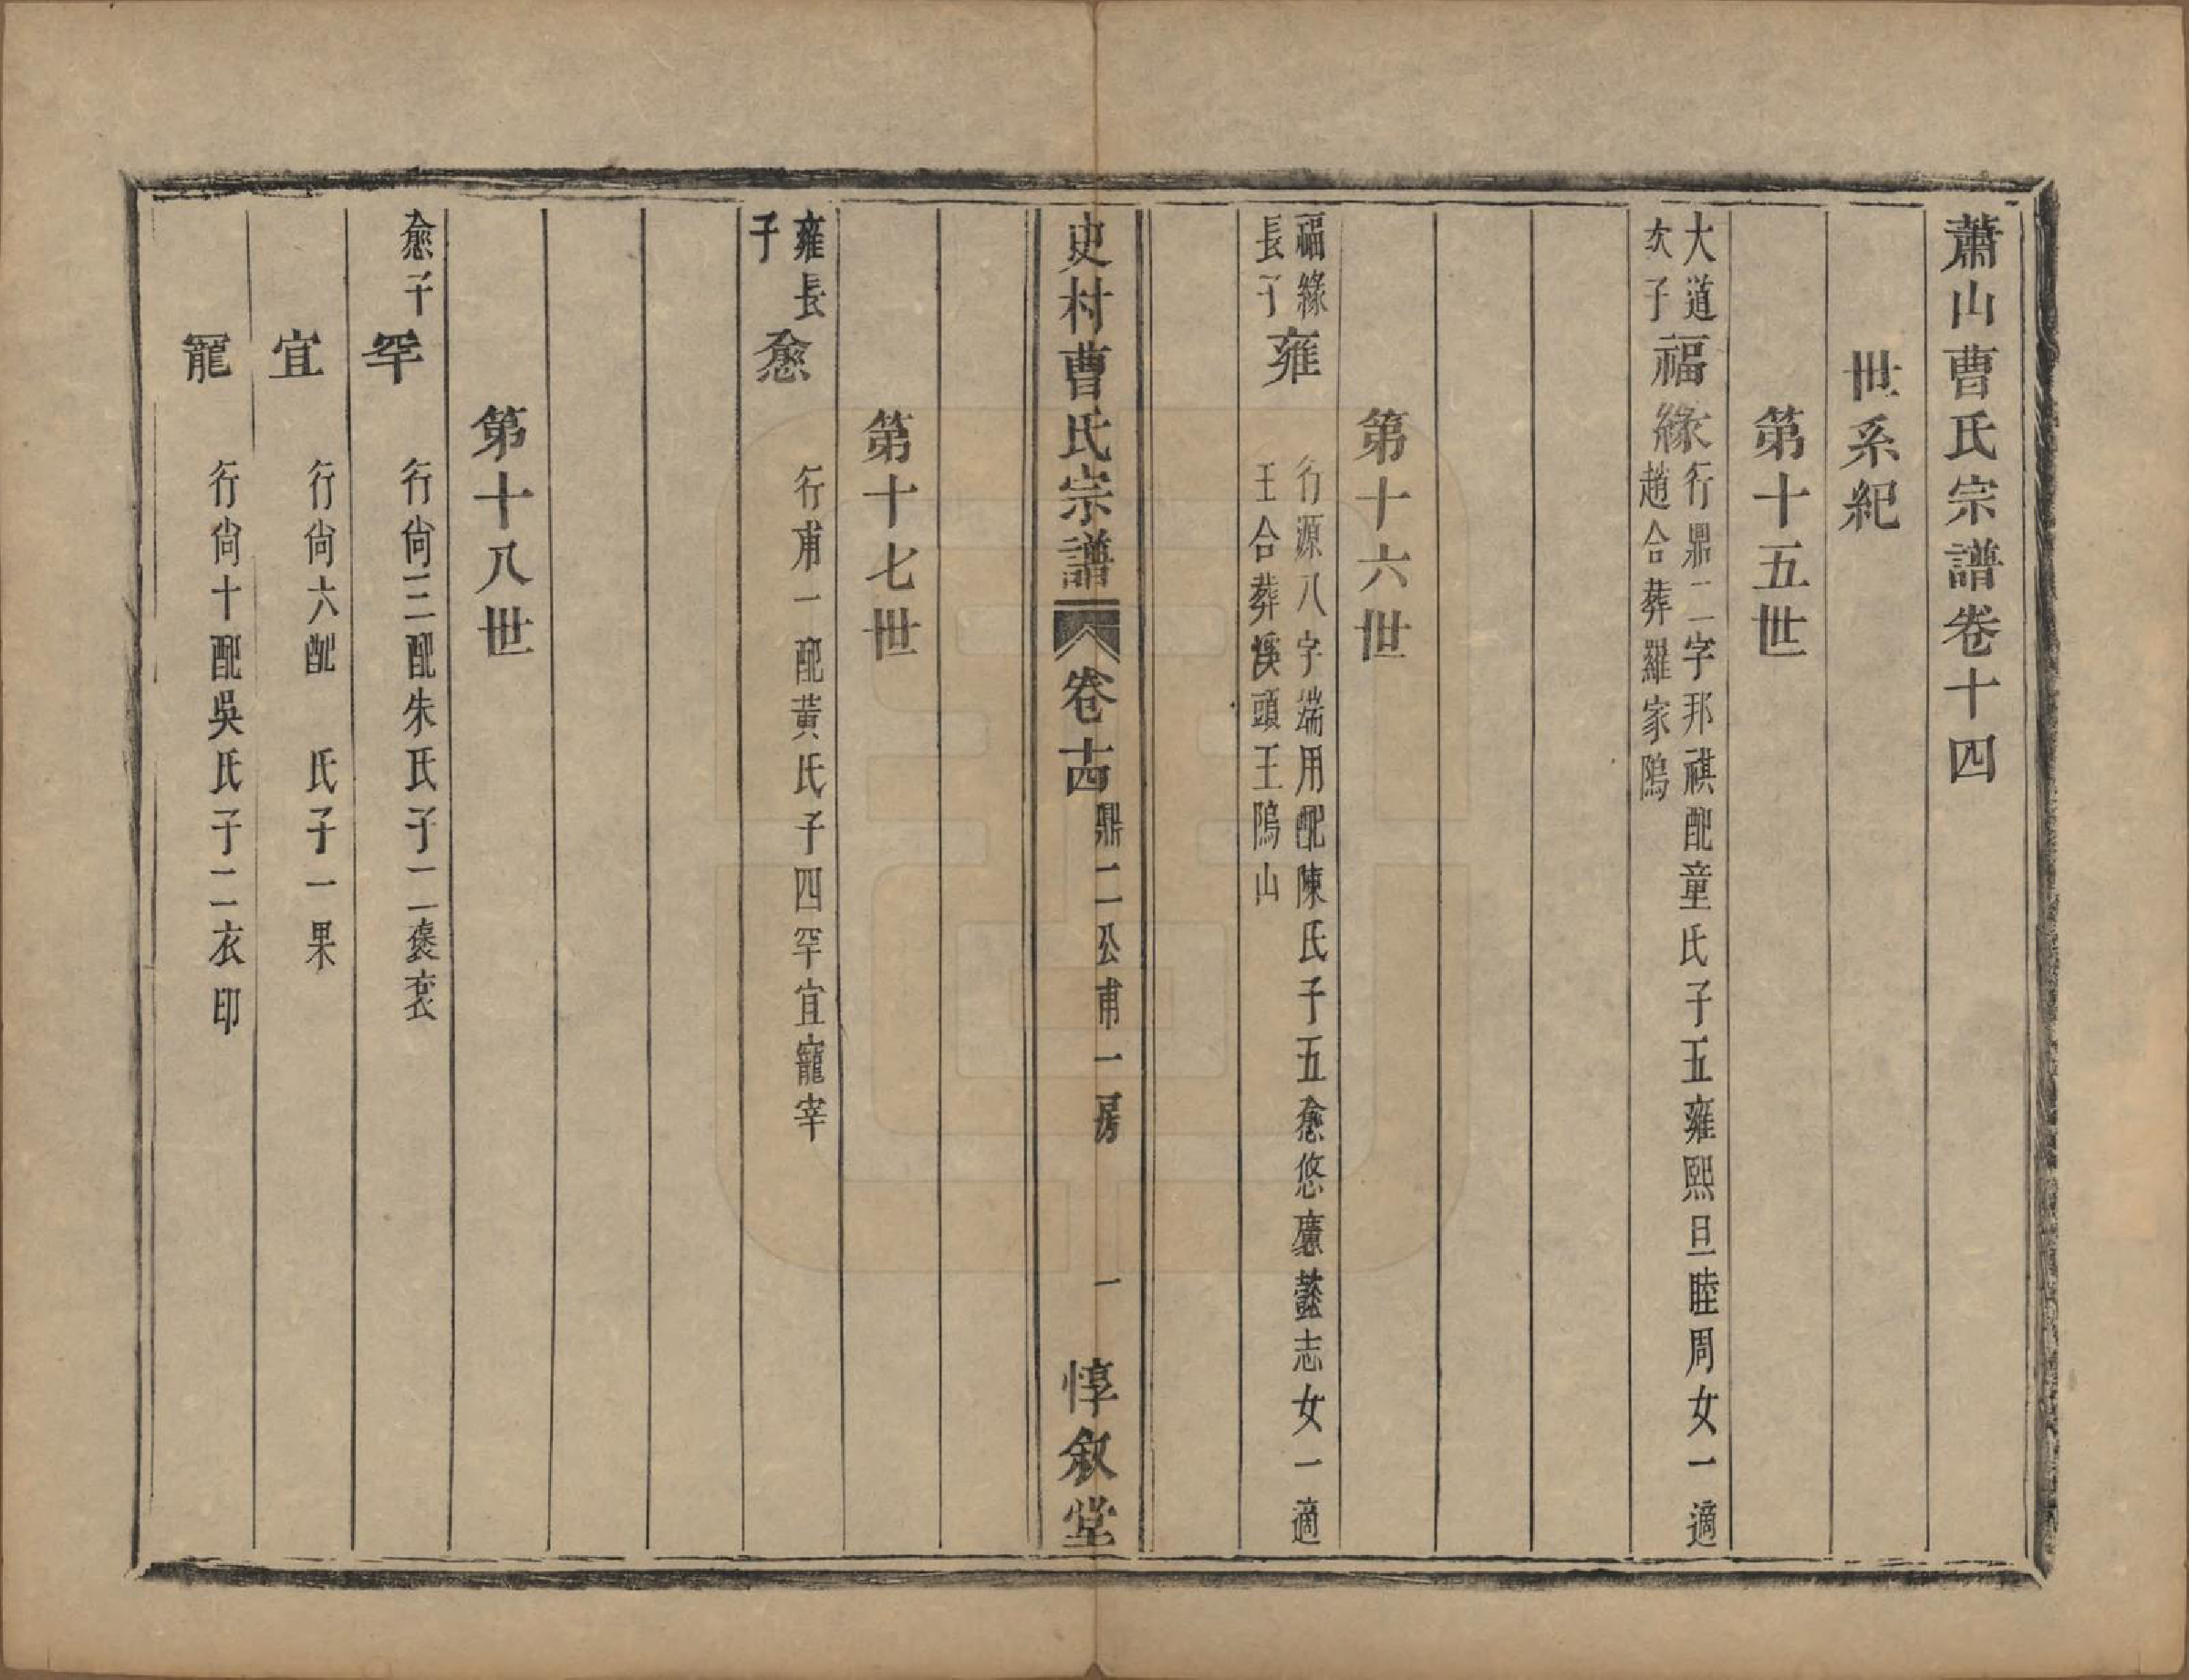 蕭山曹氏宗譜卷十四
世系紀
第十五世
大道
次子
福緣
行鼎二字邦祺配童氏子五雍熙旦睦周女一適
趙合葬羅家隖
第十六世
福緣
長子
雍
行源八字端用配陳氏子五愈悠應懿志女一適
王合葬溪頭王隖山
史村曹氏宗譜
卷十四
鼎二公甫一房
一
惇叙堂
第十七世
雍長
子
愈
行甫一配黃氏子四罕宜寵宰
第十八世
愈子
罕
行尙三配朱氏子二褒袤
宜
行尙六配 氏子一果
寵
行尙十配吳氏子二衣印